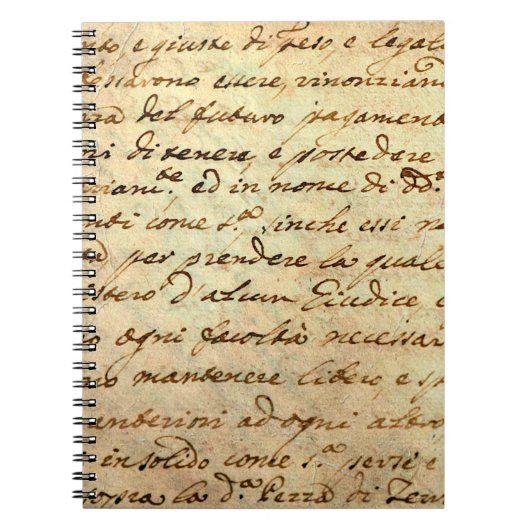 e giuste di peso, e legal
essere, rinonzian
del futuro pagamen
di tenere, e possedere
ed in nome di dd.ⁱ
come s.ᵃ sinche essi
per prendere la qual
d'alcun Giudice
ogni facoltà necessar
mantenere libero, e
anteriori ad ogni altro
in solido come s.ᵃ
sopra la d.ᵃ Pezza di Terr